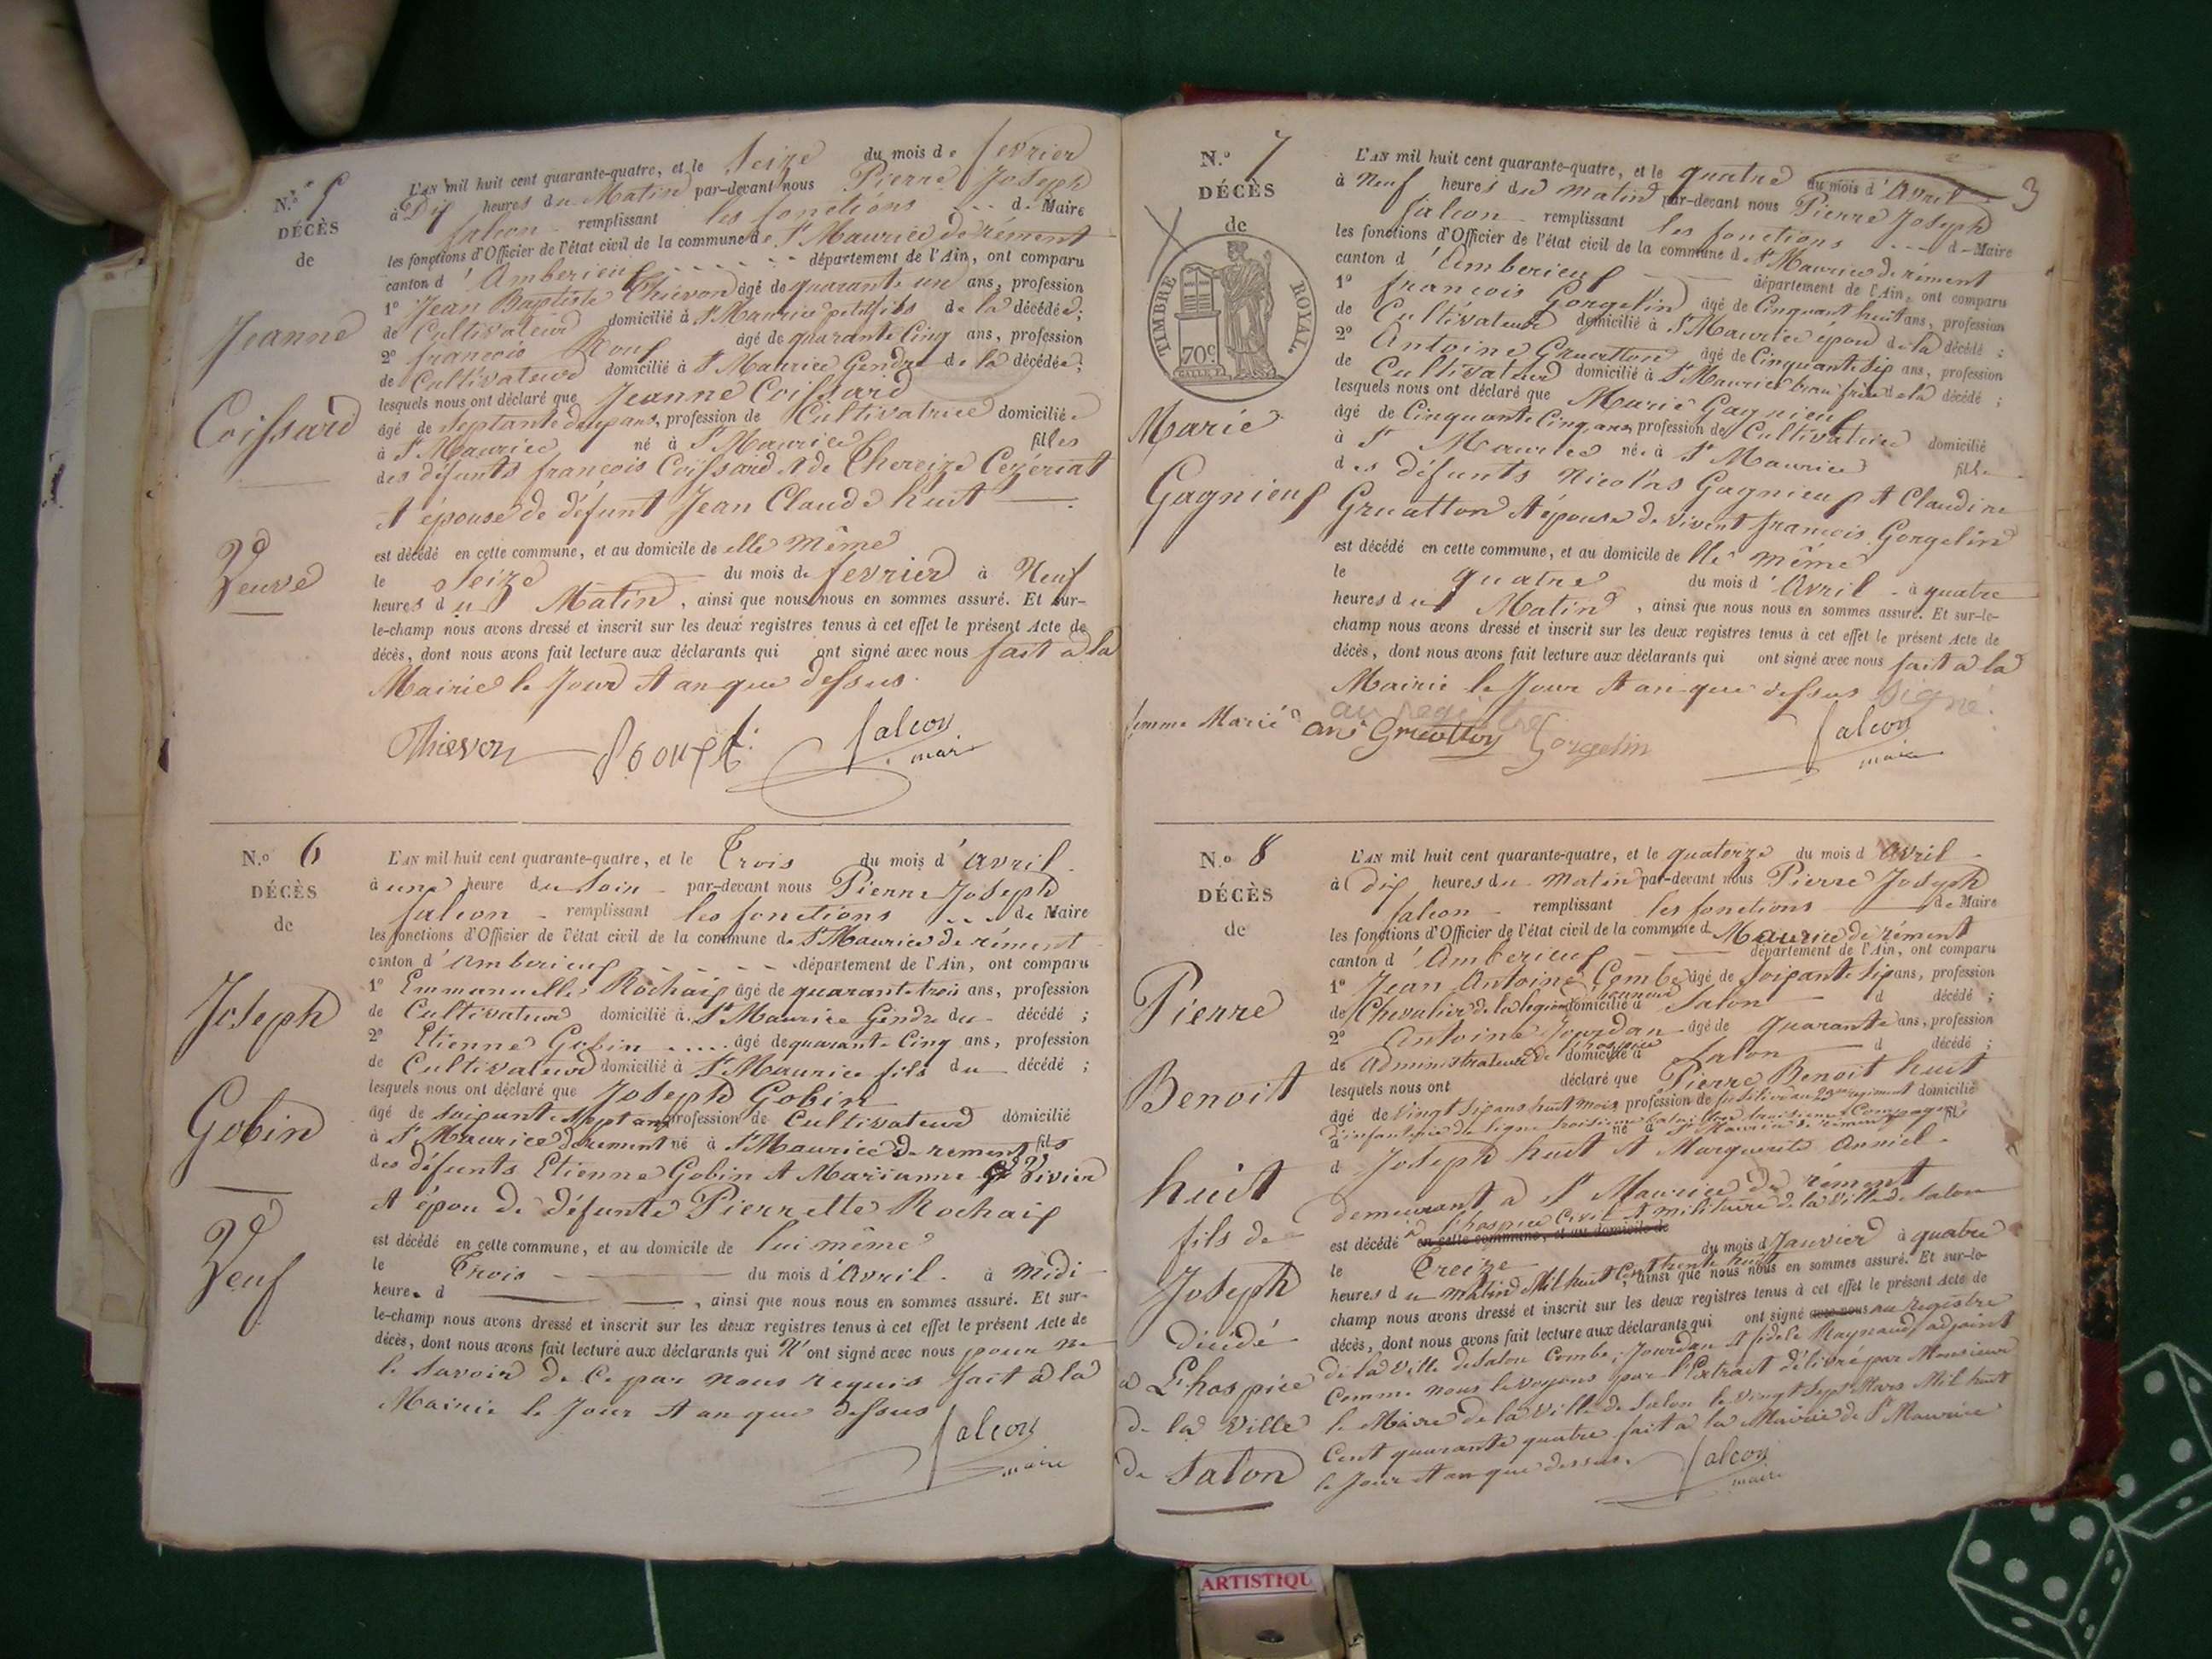 N.° 5
DÉCÈS
de
Jeanne
Coissard
Veuve
L'AN mil huit cent quarante-quatre, et le Seize du mois de fevrier
à Dix heures du Matin par-devant nous Pierre Joseph
falcon remplissant les fonctions de Maire
les fonctions d'Officier de l'état civil de la commune de St Maurice de rément
canton d'Amberieux département de l'Ain, ont comparu
1° Jean Baptiste Thievon âgé de quarante un ans, profession
de Cultivateur domicilié à St Maurice petit fils de la décédée;
2° françois Roux âgé de quarante Cinq ans, profession
de Cultivateur domicilié à St Maurice Gendre de la décédée;
lesquels nous ont déclaré que Jeanne Coissard
âgé de septante ans, profession de Cultivatrice domiciliée
à St Maurice né à St Maurice filles
des défunts françois Coissard et de Thereize Cezériat
et épouse de défunt Jean Claude huit
est décédé en cette commune, et au domicile de elle même
le Seize du mois de fevrier à Neuf
heures du Matin, ainsi que nous nous en sommes assuré. Et sur-
le-champ nous avons dressé et inscrit sur les deux registres tenus à cet effet le présent Acte de
décès, dont nous avons fait lecture aux déclarants qui ont signé avec nous fait à la
Mairie le Jour et an que dessus.
Thievon Roux falcon
maire
N.° 6
DÉCÈS
de
Joseph
Gobin
Veuf
L'AN mil huit cent quarante-quatre, et le Trois du mois d'avril
à une heure du Soir par-devant nous Pierre Joseph
falcon remplissant les fonctions de Maire
les fonctions d'Officier de l'état civil de la commune de St Maurice de rément
canton d'amberieux département de l'Ain, ont comparu
1° Emmanuelle Rochaix âgé de quarante trois ans, profession
de Cultivateur domicilié à St Maurice Gendre du décédé;
2° Etienne Gobin âgé de quarante Cinq ans, profession
de Cultivateur domicilié à St Maurice fils du décédé;
lesquels nous ont déclaré que Joseph Gobin
âgé de soixante sept ans profession de Cultivateur domicilié
à St Maurice de rement né à St Maurice de rement fils
des défunts Etienne Gobin et Marianne Vivier
et épou de défunte Pierrette Rochaix
est décédé en cette commune, et au domicile de lui même
le Trois du mois d'avril à Midi
heure d , ainsi que nous nous en sommes assuré. Et sur-
le-champ nous avons dressé et inscrit sur les deux registres tenus à cet effet le présent Acte de
décès, dont nous avons fait lecture aux déclarants qui N'ont signé avec nous pour ne
le savoir de Ce par nous requis fait à la
Mairie le Jour et an que dessus
falcon
maire
3
N.° 7
DÉCÈS
de
TIMBRE ROYAL.
70c.
Marie
Gagnieux
femme Marié
L'AN mil huit cent quarante-quatre, et le quatre du mois d'Avril
à Neuf heures du matin par-devant nous Pierre Joseph
falcon remplissant les fonctions de Maire
les fonctions d'Officier de l'état civil de la commune de St Maurice de rément
canton d'Amberieux département de l'Ain, ont comparu
1° françois Gorgelin âgé de Cinquant huit ans, profession
de Cultivateur domicilié à St Maurice épou de la décédé;
2° Antoine Gruatton âgé de Cinquante Six ans, profession
de Cultivateur domicilié à St Maurice beau frère de la décédé;
lesquels nous ont déclaré que Marie Gagnieux
âgé de Cinquante Cinq ans, profession de Cultivatrice domicilié
à St Maurice née à St Maurice fille
des défunts Nicolas Gagnieux et Claudine
Gruatton et épouse de vivent françois Gorgelin
est décédé en cette commune, et au domicile de lle même
le quatre du mois d'Avril à quatre
heures du Matin, ainsi que nous nous en sommes assuré. Et sur-le-
champ nous avons dressé et inscrit sur les deux registres tenus à cet effet le présent Acte de
décès, dont nous avons fait lecture aux déclarants qui ont signé avec nous fait à la
Mairie le Jour et an que dessus signé
au registre
ant Gruatton Gorgelin falcon
maire
N.° 8
DÉCÈS
de
Pierre
Benoit
huit
fils de
Joseph
décédé
a L'hospice
de la ville
de Salon
L'AN mil huit cent quarante-quatre, et le quatorze du mois d Avril
à dix heures du matin par-devant nous Pierre Joseph
falcon remplissant les fonctions de Maire
les fonctions d'Officier de l'état civil de la commune d Maurice de rément
canton d'Amberieux département de l'Ain, ont comparu
1° Jean Antoine Combe âgé de soixante Six ans, profession
de Chevalier de la legion d'honneur domicilié à Salon d décédé;
2° Antoine Jourdan âgé de quarante ans, profession
de administrateur de l'hospice domicilié à Salon d décédé;
lesquels nous ont déclaré que Pierre Benoit huit
âgé de vingt six ans huit mois, profession de fusilier au 23me regiment domicilié
d'infanterie de ligne troisieme bataillon troisieme Compagnie
à né à St Maurice de rément fil
d Joseph huit et Marguerite
demeurant a St Maurice de rément
est décédé a l'hospice Civil et militaire de la Ville de Salon
en cette commune, et au domicile de
le Treize du mois d Janvier à quatre
heures du matin Mil huit Cent , ainsi que nous nous en sommes assuré. Et sur-le-
champ nous avons dressé et inscrit sur les deux registres tenus à cet effet le présent Acte de
décès, dont nous avons fait lecture aux déclarants qui ont signé avec nous au registre
de la ville de Salon Combe, Jourdan et fidele Raynaud adjoint
Comme nous le voyons par l'Extrait délivré par Monsieur
le Maire de la Ville de Salon le vingt Sept Mars Mil huit
Cent quarante quatre fait à la Mairie de St Maurice
le Jour et an que dessus.
falcon
maire
ARTISTIQU